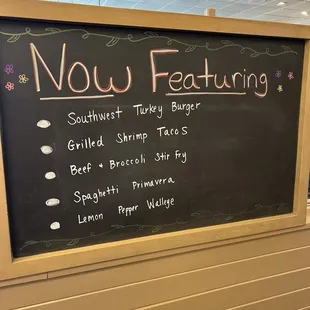 Now Featuring
Southwest Turkey Burger
Grilled Shrimp Tacos
Beef & Broccoli Stir Fry
Spaghetti Primavera
Lemon Pepper Walleye